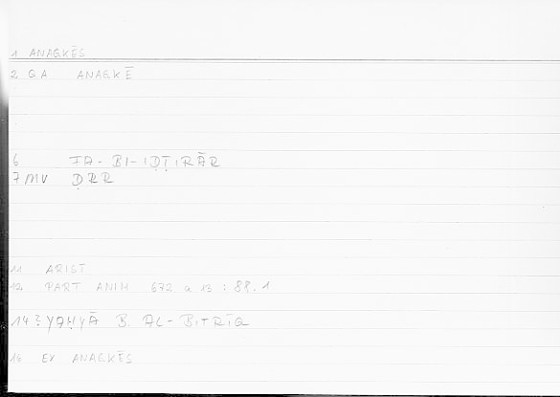 1 ANAGKĒS
2 GA ANAGKĒ
6 FA- BI-IḌṬIRĀR
7 MV ḌRR
11 ARIST
12 PART ANIM 672 a 13 : 88.1
14 YAḤYĀ B. AL-BIṬRĪQ
16 EX ANAGKĒS